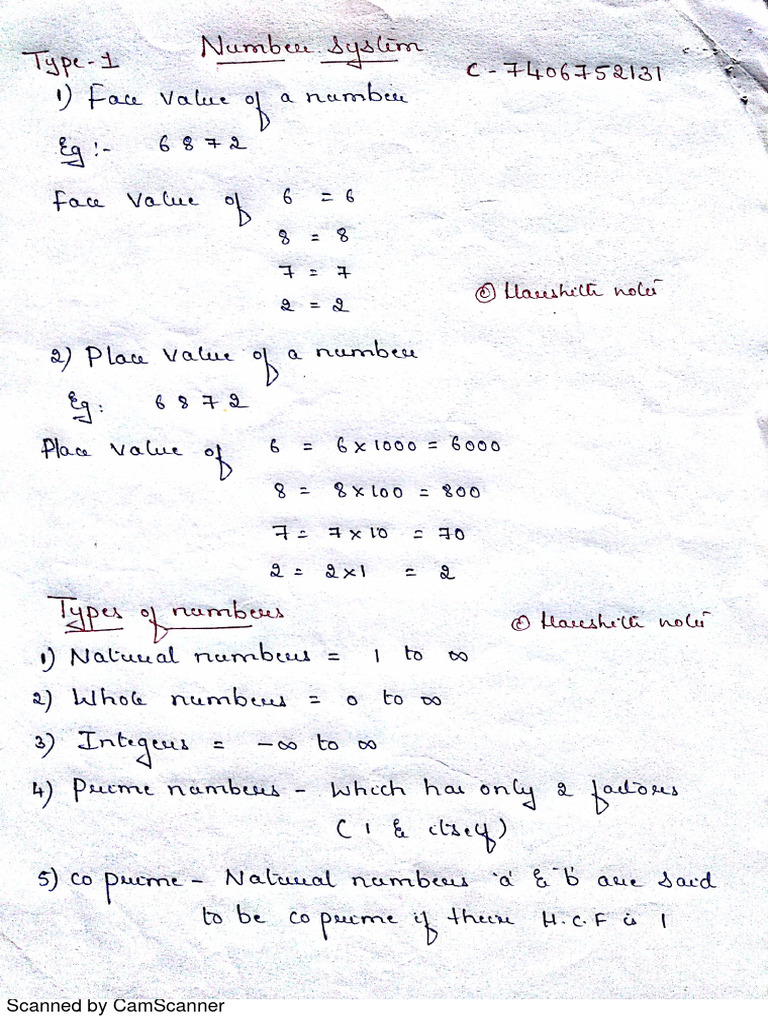 Number System
Type-1
C - 7406752131
1) Face value of a number
Eg :- 6872
Face value of 6 = 6
8 = 8
7 = 7
2 = 2
© Harshith notes
2) Place value of a number
Eg: 6872
Place value of 6 = 6x1000 = 6000
8 = 8x100 = 800
7 = 7x10 = 70
2 = 2x1 = 2
Types of numbers
© Harshith notes
1) Natural numbers = 1 to ∞
2) Whole numbers = 0 to ∞
3) Integers = -∞ to ∞
4) Prime numbers - which has only 2 factors
(1 & itself)
5) co prime - Natural numbers 'a' & 'b' are said
to be co prime if there H.C.F is 1
Scanned by CamScanner